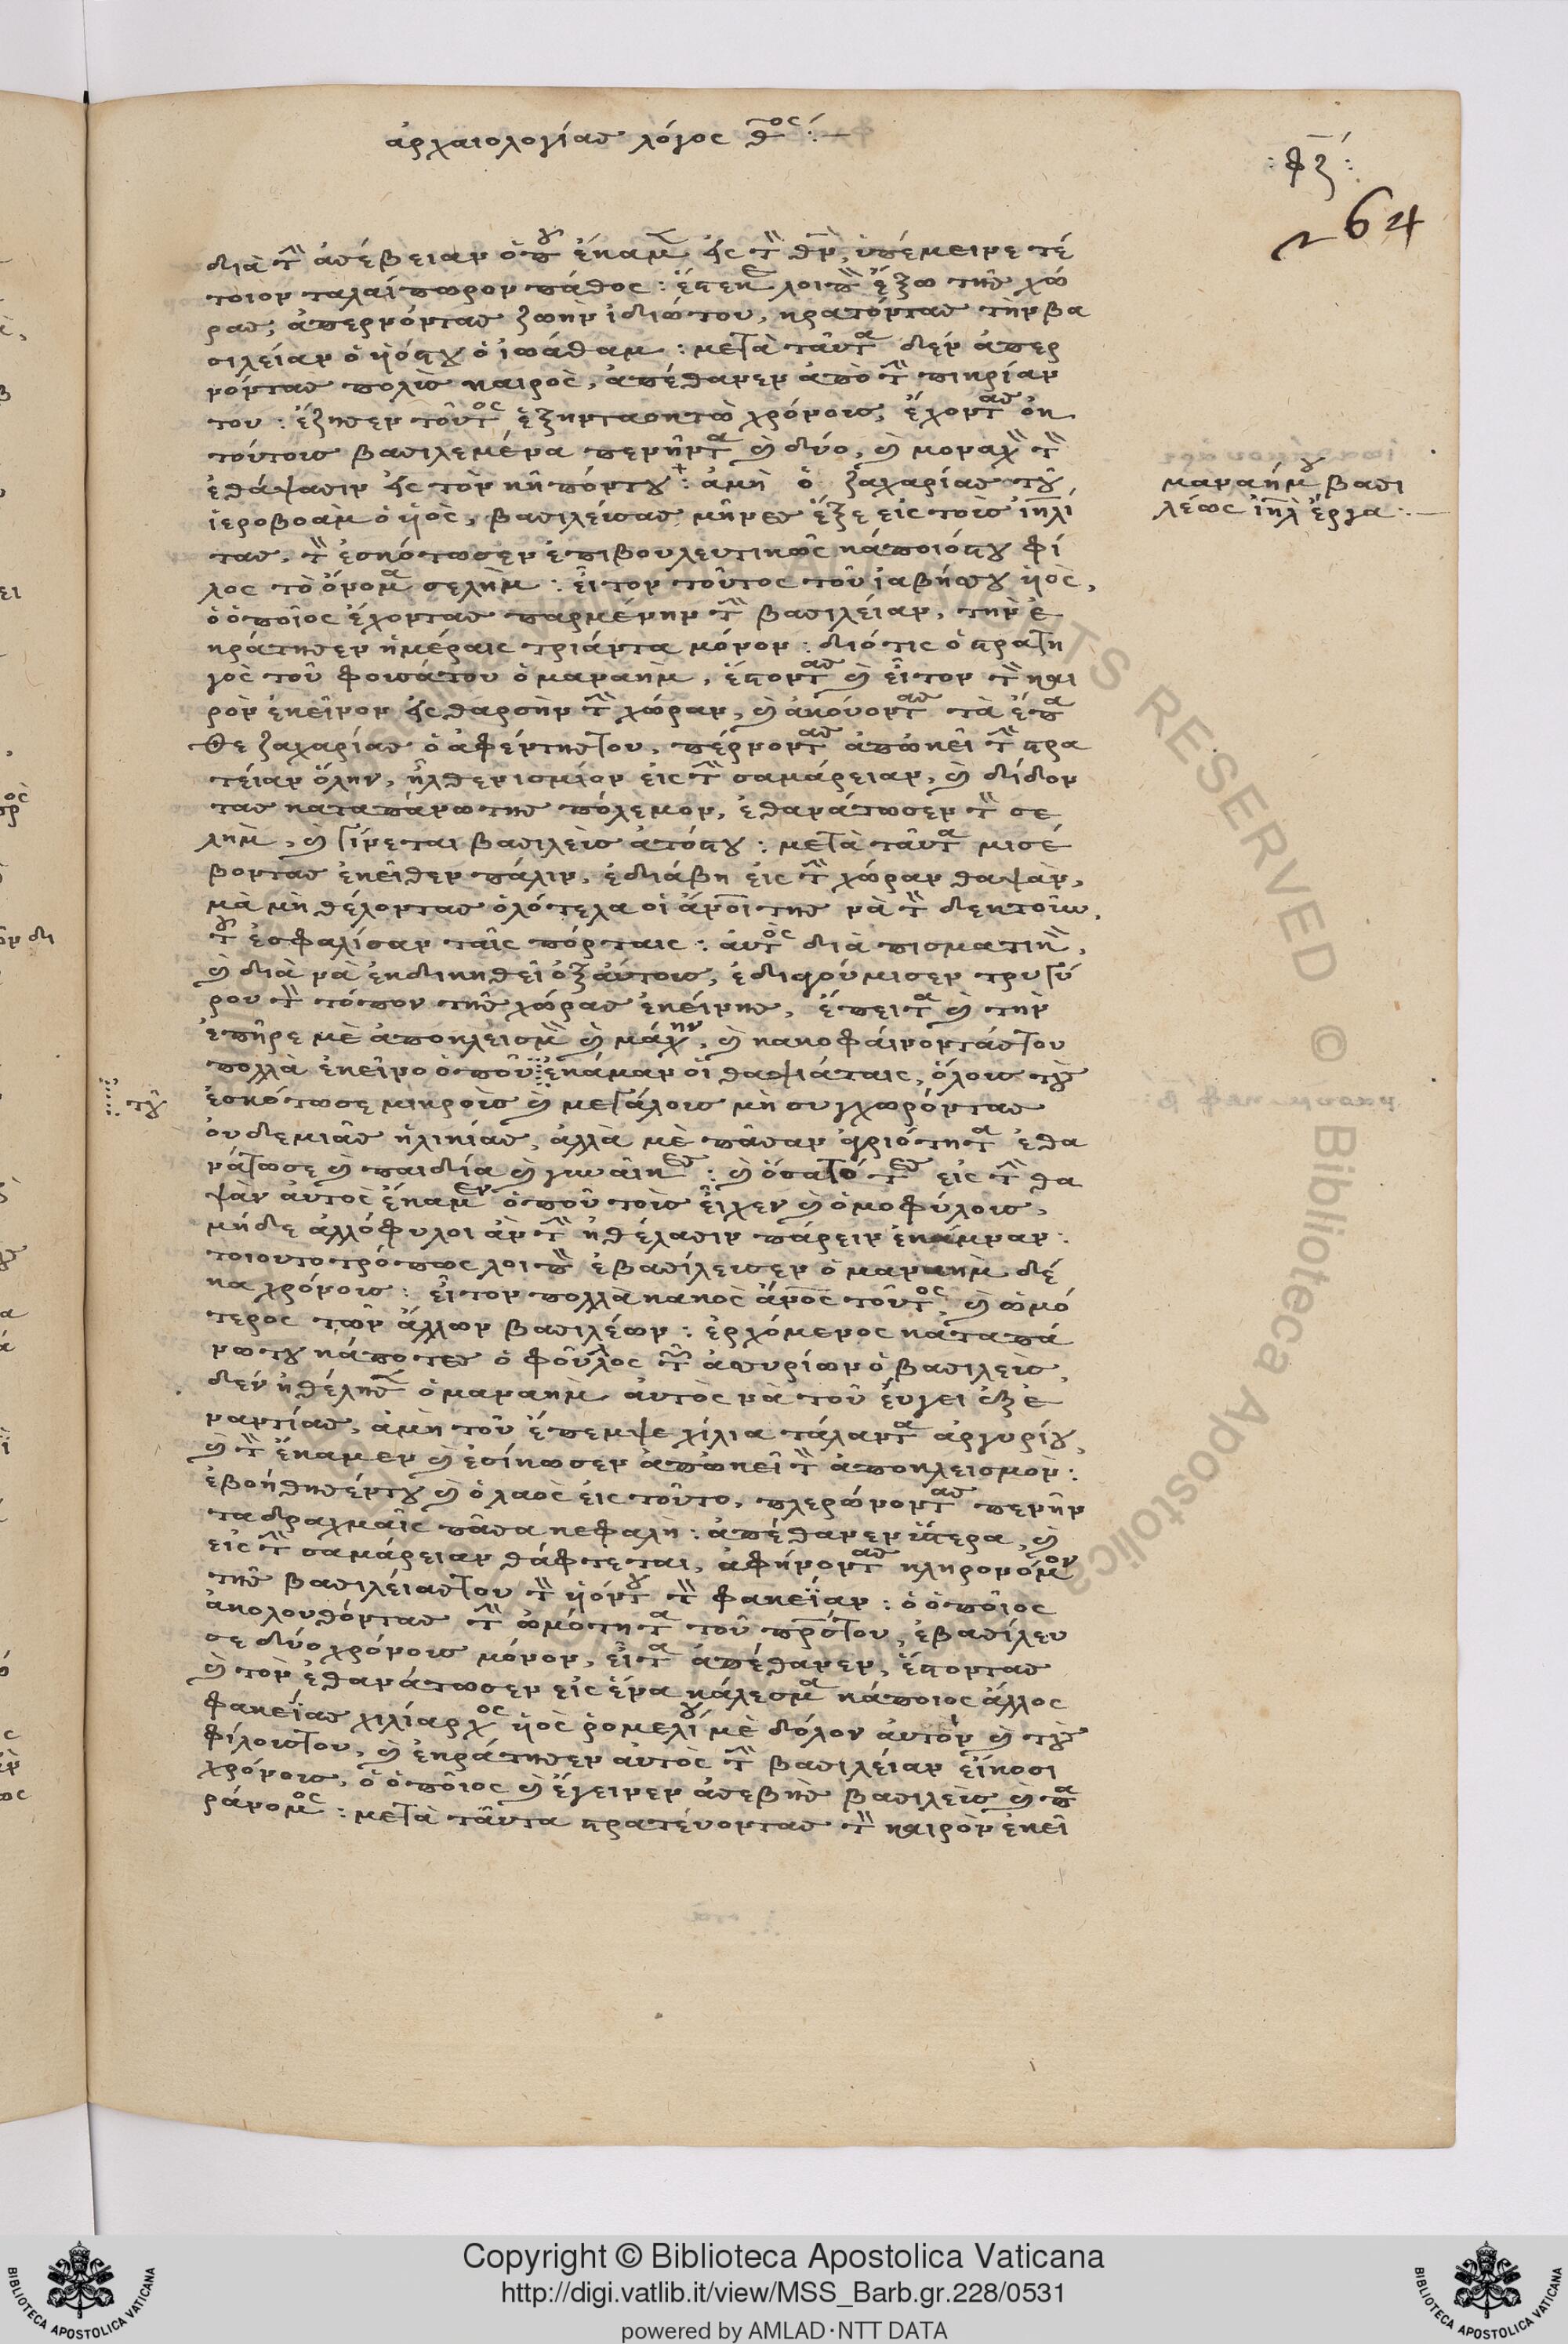 ἀρχαιολογίας λόγος θος :—
: φζ :
264
διὰ τὴν ἀσέβειαν ὁποῦ ἔκαμεν εἰς τὸν θν, ὑπέμεινε τέ
τοιον ταλαίπωρον πάθος : ἔστεκε λοιπὸν ἔξω τῆς χώ
ρας, ἀπερνόντας ζωὴν ἰδιώτου, κρατόντας τὴν βα
σιλείαν ὁ ἡόςτου ὁ ἰωάθαμ : μετὰ ταῦτα δὲν ἀπερ
νόντας πολὶς καιρὸς, ἀπέθανεν ἀπὸ τὴν πικρίαν
του : ἔζησεν τοῦτος ἑξηνταοκτὼ χρόνοις, ἔχοντας ὀκ
τούτοις βασιλεμένα πενῆντα καὶ δύο, καὶ μοναχὸν τὸν
ἐθάψασιν εἰς τὸν κῆπόντου : ἀμὴ ὁ ζαχαρίας τοῦ
ἱεροβοὰμ ὁ ἡὸς, βασιλεύσας μῆνες ἕξε εἰς τοὺς ἰηλί
τας, τὸν ἐσκότωσεν ἐπιβουλευτικῶς κάποιόςτου φί
λος τὸ ὄνομα σελὴμ : εἶτον τοῦτος τοῦ ἰαβήσου ἡὸς,
ὁ ὁποῖος ἔχοντας παρμένην τὴν βασιλείαν, τὴν ἐ
κράτησεν ἡμέραις τριάντα μόνον : διότις ὁ στρατη
γὸς τοῦ φουσάτου ὁ μαναὴμ, ἔστοντας καὶ εἶτον τὸν και
ρὸν ἐκεῖνον εἰς θαρσὴν τὴν χώραν, καὶ ἀκούοντας τὰ ἔπα
θε ζαχαρίας ὁ ἀφέντηςτου, πέρνοντας ἀπὠκεῖ τὴν στρα
τείαν ὅλην, ἦλθεν ισμίον εἰς τὴν σαμάρειαν, καὶ δίδον
τας καταπάνωτης πόλεμον, ἐθανάτωσεν τὸν σε
λὴμ, καὶ γίνεται βασιλεὺς ἀτόςτου : μετὰ ταῦτα μισέ
βοντας ἐκεῖθεν πάλιν, ἐδιάβη εἰς τὴν χώραν θαψὰν,
μὰ μὴ θέλοντας ὁλότελα οἱ ἄνοι της νὰ τὸν δεκτοῦν,
τοῦ ἐσφαλίσαν ταῖς πόρταις : αὐτὸς διὰ πισματικὸν,
καὶ διὰ νὰ ἐκδικηθεῖ ὀξαύτους, ἐδιαγούμισεν τρυγύ
ρου τὸν τόπον τῆς χώρας ἐκείνης, ἔπειτα καὶ τὴν
ἐπῆρε μὲ ἀποκλεισμὸν καὶ μάχην, καὶ κακοφαίνοντάςτου
πολλὰ ἐκεῖνο ὁποῦ ἐκάμαν οἱ θαψιάταις, ὅλους τοὺς
τοῦ ἐσκότωσε μικροὺς καὶ μεγάλους μὴ συγχωρόντας
οὐδεμιᾶς ἡλικίας, ἀλλὰ μὲ πᾶσαν ἀγριότητα ἐθα
νάτωσε καὶ παιδία καὶ γυναῖκες : καὶ ὅσα εἰς τὴν θα
ψὰν αὐτὸς ἔκαμεν ὁποῦ τοὺς εἶχεν καὶ ὁμοφύλους,
μήδε ἀλλόφυλοι ἂν τὴν ἠθέλασιν πάρειν ἐκάμναν :
τοιουτοτρόπως λοιπὸν ἐβασίλευσεν ὁ μαναὴμ δέ
κα χρόνους : εἶτον πολλὰ κακὸς ἄνος τοῦτος, καὶ ὠμό
τερος τῶν ἄλλων βασιλέων : ἐρχόμενος κάταπά
νωτου κάποτες ὁ φοῦλος τῶν ἀσυρίων ὁ βασιλεὺς,
δὲν ἠθέλησε ὁ μαναὴμ αὐτὸς νὰ τοῦ εὔγει ἐξε
ναντίας, ἀμὴ τοῦ ἔπεμψε χίλια τάλαντα ἀργυρίου,
καὶ τὸν ἔκαμεν καὶ ἐσίκωσεν ἀπὠκεῖ τὸν ἀποκλεισμὸν :
ἐβοήθησέντου καὶ ὁ λαὸς εἰς τοῦτο, πλερώνοντας πενῆν
τα δραχμαῖς πᾶσα κεφαλὴ : ἀπέθανεν ὕστερα, καὶ
εἰς τὴν σαμάρειαν θάφτεται, ἀφήνοντας κληρονόμον
τῆς βασιλείαςτου τὸν ἡόντου τὸν φακεΐαν : ὁ ὁποῖος
ἀκολουθόντας τὴν ὠμότητα τοῦ πρςτου, ἐβασίλευ
σε δύο χρόνους μόνον, εἶτα ἀπέθανεν, ἔστοντας
καὶ τὸν ἐθανάτωσεν εἰς ἕνα κάλεσμα κάποιος ἄλλος
φακεΐας χιλίαρχος ἡὸς ῥομελίου μὲ δόλον αὐτὸν καὶ τοὺς
φίλουςτου, καὶ ἐκράτησεν αὐτὸς τὴν βασιλείαν εἴκοσι
χρόνους, ὁ ὁποῖος καὶ ἔγεινεν ἀσεβὴς βασιλεὺς καὶ πα
ράνομος : μετὰ ταῦτα στρατεύοντας τὸν καιρὸν ἐκεῖ
μαναήμου βασι
λέως ἰηλ ἔργα :—
Copyright © Biblioteca Apostolica Vaticana
http://digi.vatlib.it/view/MSS_Barb.gr.228/0531
powered by AMLAD·NTT DATA